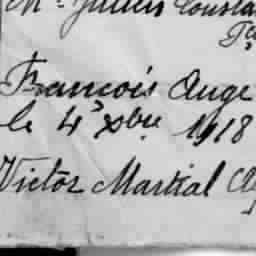 Mr. Julien Consta
François Ange
le 4 Xbre 1918
Victor Martial